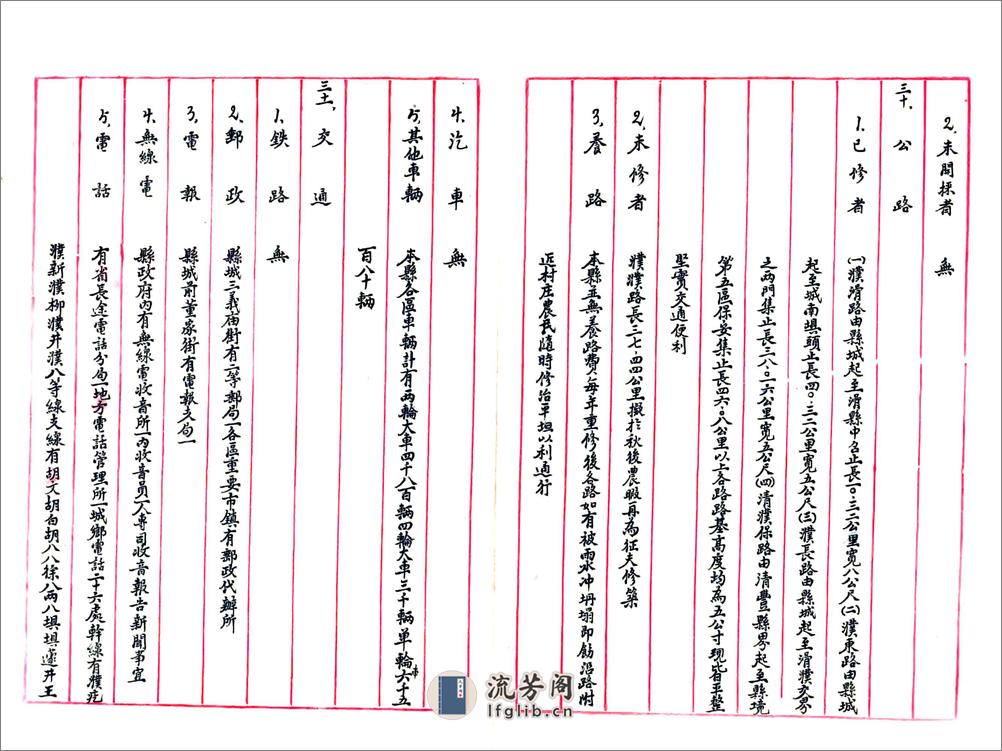 2、未開採者 無
三十、公路
1、已修者 (一)濮滑路由縣城起至滑縣中召止長一〇·三二公里寬八公尺(二)濮東路由縣城
起至城南壩頭止長四〇·三二公里寬五公尺(三)濮長路由縣城起至滑濮交界
之兩門集止長三八·〇一六公里寬五公尺(四)清濮保路由清豐縣界起至縣境
第五區保安集止長四六·〇八公里以上各路路基高度均為五公寸現皆平整
堅實交通便利
2、未修者 濮濮路長三七·四四公里擬於秋後農暇再為征夫修築
3、養路 本縣並無養路費每年重修後各路如有被雨水冲坍塌即飭沿路附
近村庄農民隨時修治平坦以利通行
4、汽車 無
5、其他車輛 本縣各區車輛計有兩輪大車四千八百輛四輪大車三十輛單輪車六十五
百八十輛
三十一、交通
1、鉄路 無
2、郵政 縣城三義庙街有二等郵局一各區重要市鎮有郵政代辦所
3、電報 縣城前董家街有電報支局一
4、無線電 縣政府內有無線電收音所一內收音員一人專司收音報告新聞事宜
5、電話 有省長途電話分局一地方電話管理所一城鄉電話二十六處幹線有濮
濮新濮柳濮井濮八等線支線有胡文胡白胡八八徐八兩八壩壩 井王
流芳阁
lfglib.cn